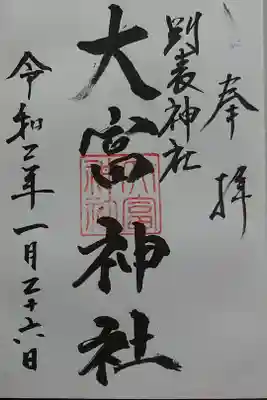 奉拝
別表神社
大宮神社
令和二年一月二十六日